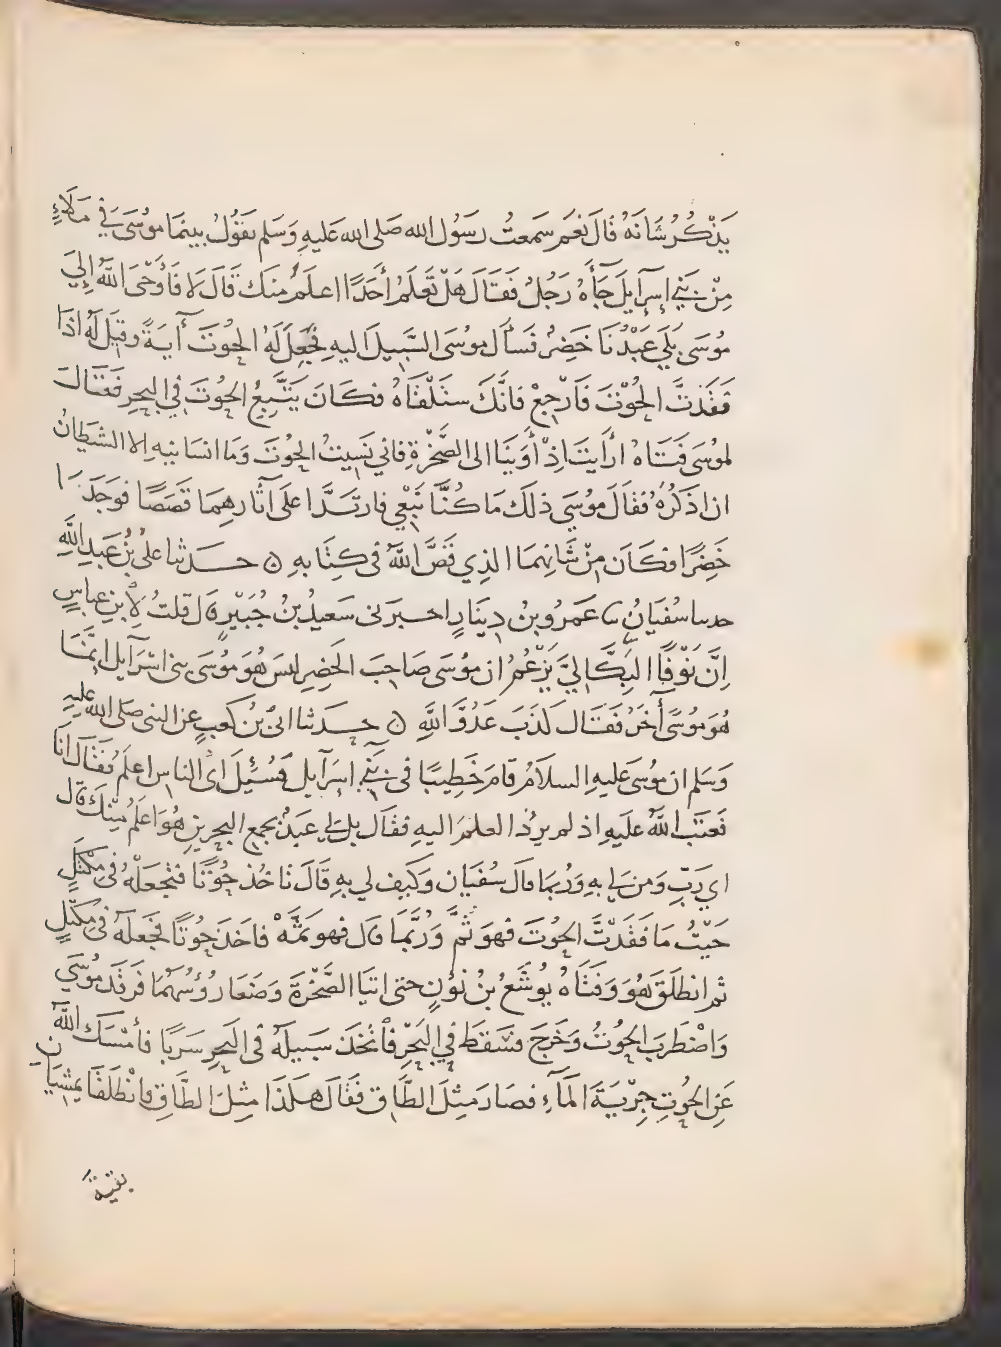 يَذْكُرُ شَانَهُ قَالَ نَعَم سَمِعتُ رَسُول الله صَلى الله عَليهِ وَسَلم يَقوُلُ بينمَا موُسَى في مَلَاءٍ
مِنْ بَنِي إِسرَآيلَ جَآءَهُ رَجُلٌ فَقَالَ هَلْ تَعلَمُ أَحَدًا اعلَمُ مِنكَ قَالَ لَا فَأَوْحَى اللَّهُ إِليَ
مُوسَى بَلَي عَبْدُنَا خَضِرٌ فَسأَل موُسَى السَّبِيلَ اليهِ فَجُعِلَ لَهُ الحوُتَ آيَةً وقيلَ لَهُ اذَا
فَقَدْتَّ الحُوْتَ فَارْجِعْ فَانَّكَ ستَلْقَاهُ فكَانَ يَتَّبِعُ الحُوتَ فِي البحرِ فَقَالَ
لموُسَى فَتَاهُ ارَأيتَ اِذْ أَوَيْنَا الى الصَّخْرَةِ فاني نَسِيتُ الحُوتَ وَمَا انسانيهِ الا الشيطانُ
ان اذكُرَهُ فقَالَ موُسَي ذلكَ مَا كُنَّا نَبْغِي فارتَدَّا عَلى آثارهِمَا قَصَصًا فوَجَدَا
خَضِرًا فكَانَ مِنْ شَانِهِمَا الذِي قَصَّ اللَّهُ فى كِتَابهِ ۝ حَدثنا عليُّ بْنُ عَبدِ اللَّهِ
حدثنا سُفيَانُ ثنا عَمرُو بنُ دِينَارٍ اخبَرَنى سَعيدُ بنُ جُبَيْرٍ قال قلتُ لِابنِ عباسٍ
اِنَّ نَوْفًا البَكَّالِيَّ يَزْعُمُ ان موُسَى صَاحِبَ الخَضِرِ ليسَ هُوَ موُسَى بنى اسْرَآيل انَّمَا
هُوَ موُسًى آخَرُ فقَالَ كَذَبَ عَدُوُّ اللَّهِ ۝ حَدثنا ابيُّ بْنُ كَعبٍ عَن النبى صَلى الله عليهِ
وَسَلم ان موُسَى عَليهِ السلامُ قَامَ خَطِيبًا فى بَنِي اِسرَآيل فسُئِلَ اىُّ الناسِ اعلَمُ فقَالَ انَا
فَعتَبَ اللَّهُ عَليهِ اذ لم يردَّ العلمَ اليهِ فقَال بلى لِي عَبدٌ بمجمعِ البحرينِ هُوَ اعلَمُ مِنْكَ قال
اي رَبِّ وَمَن لي بهِ وَرُبمَا قال سُفيَان وَكَيفَ لي بهِ قَالَ تَاخُذ حُوْتًا فتَجعَلُهُ فى مِكْتَلٍ
حَيْثُ مَا فَقَدْتَّ الحوُتَ فهُوَ ثَمَّ وَرُبَّمَا قال فهو ثَمَّهْ فاخَذَ حوُتًا فجَعَلَهُ فى مِكتَلٍ
ثم انطَلَقَ هُوَ وَفَتَاهُ يوُشَعُ بنُ نوُنٍ حتى اتيَا الصَّخْرَةَ وَضَعَا رُؤُسَهُمَا فرَقَدَ موُسَي
وَاضْطَربَ الحوُتُ وَخَرَجَ فسَقَطَ فِي البَحْرِ فاتَّخَذَ سَبيلَهُ فى البَحرِ سَرَبًا فأمْسَكَ اللَّهُ
عَنِ الحُوتِ جِرْيَةَ المَآءِ فصَارَ مِثْلَ الطَّاقِ فقَالَ هكَذَا مِثلَ الطَّاقِ فانْطَلَقَا يمشيَانِ
بقيةَ